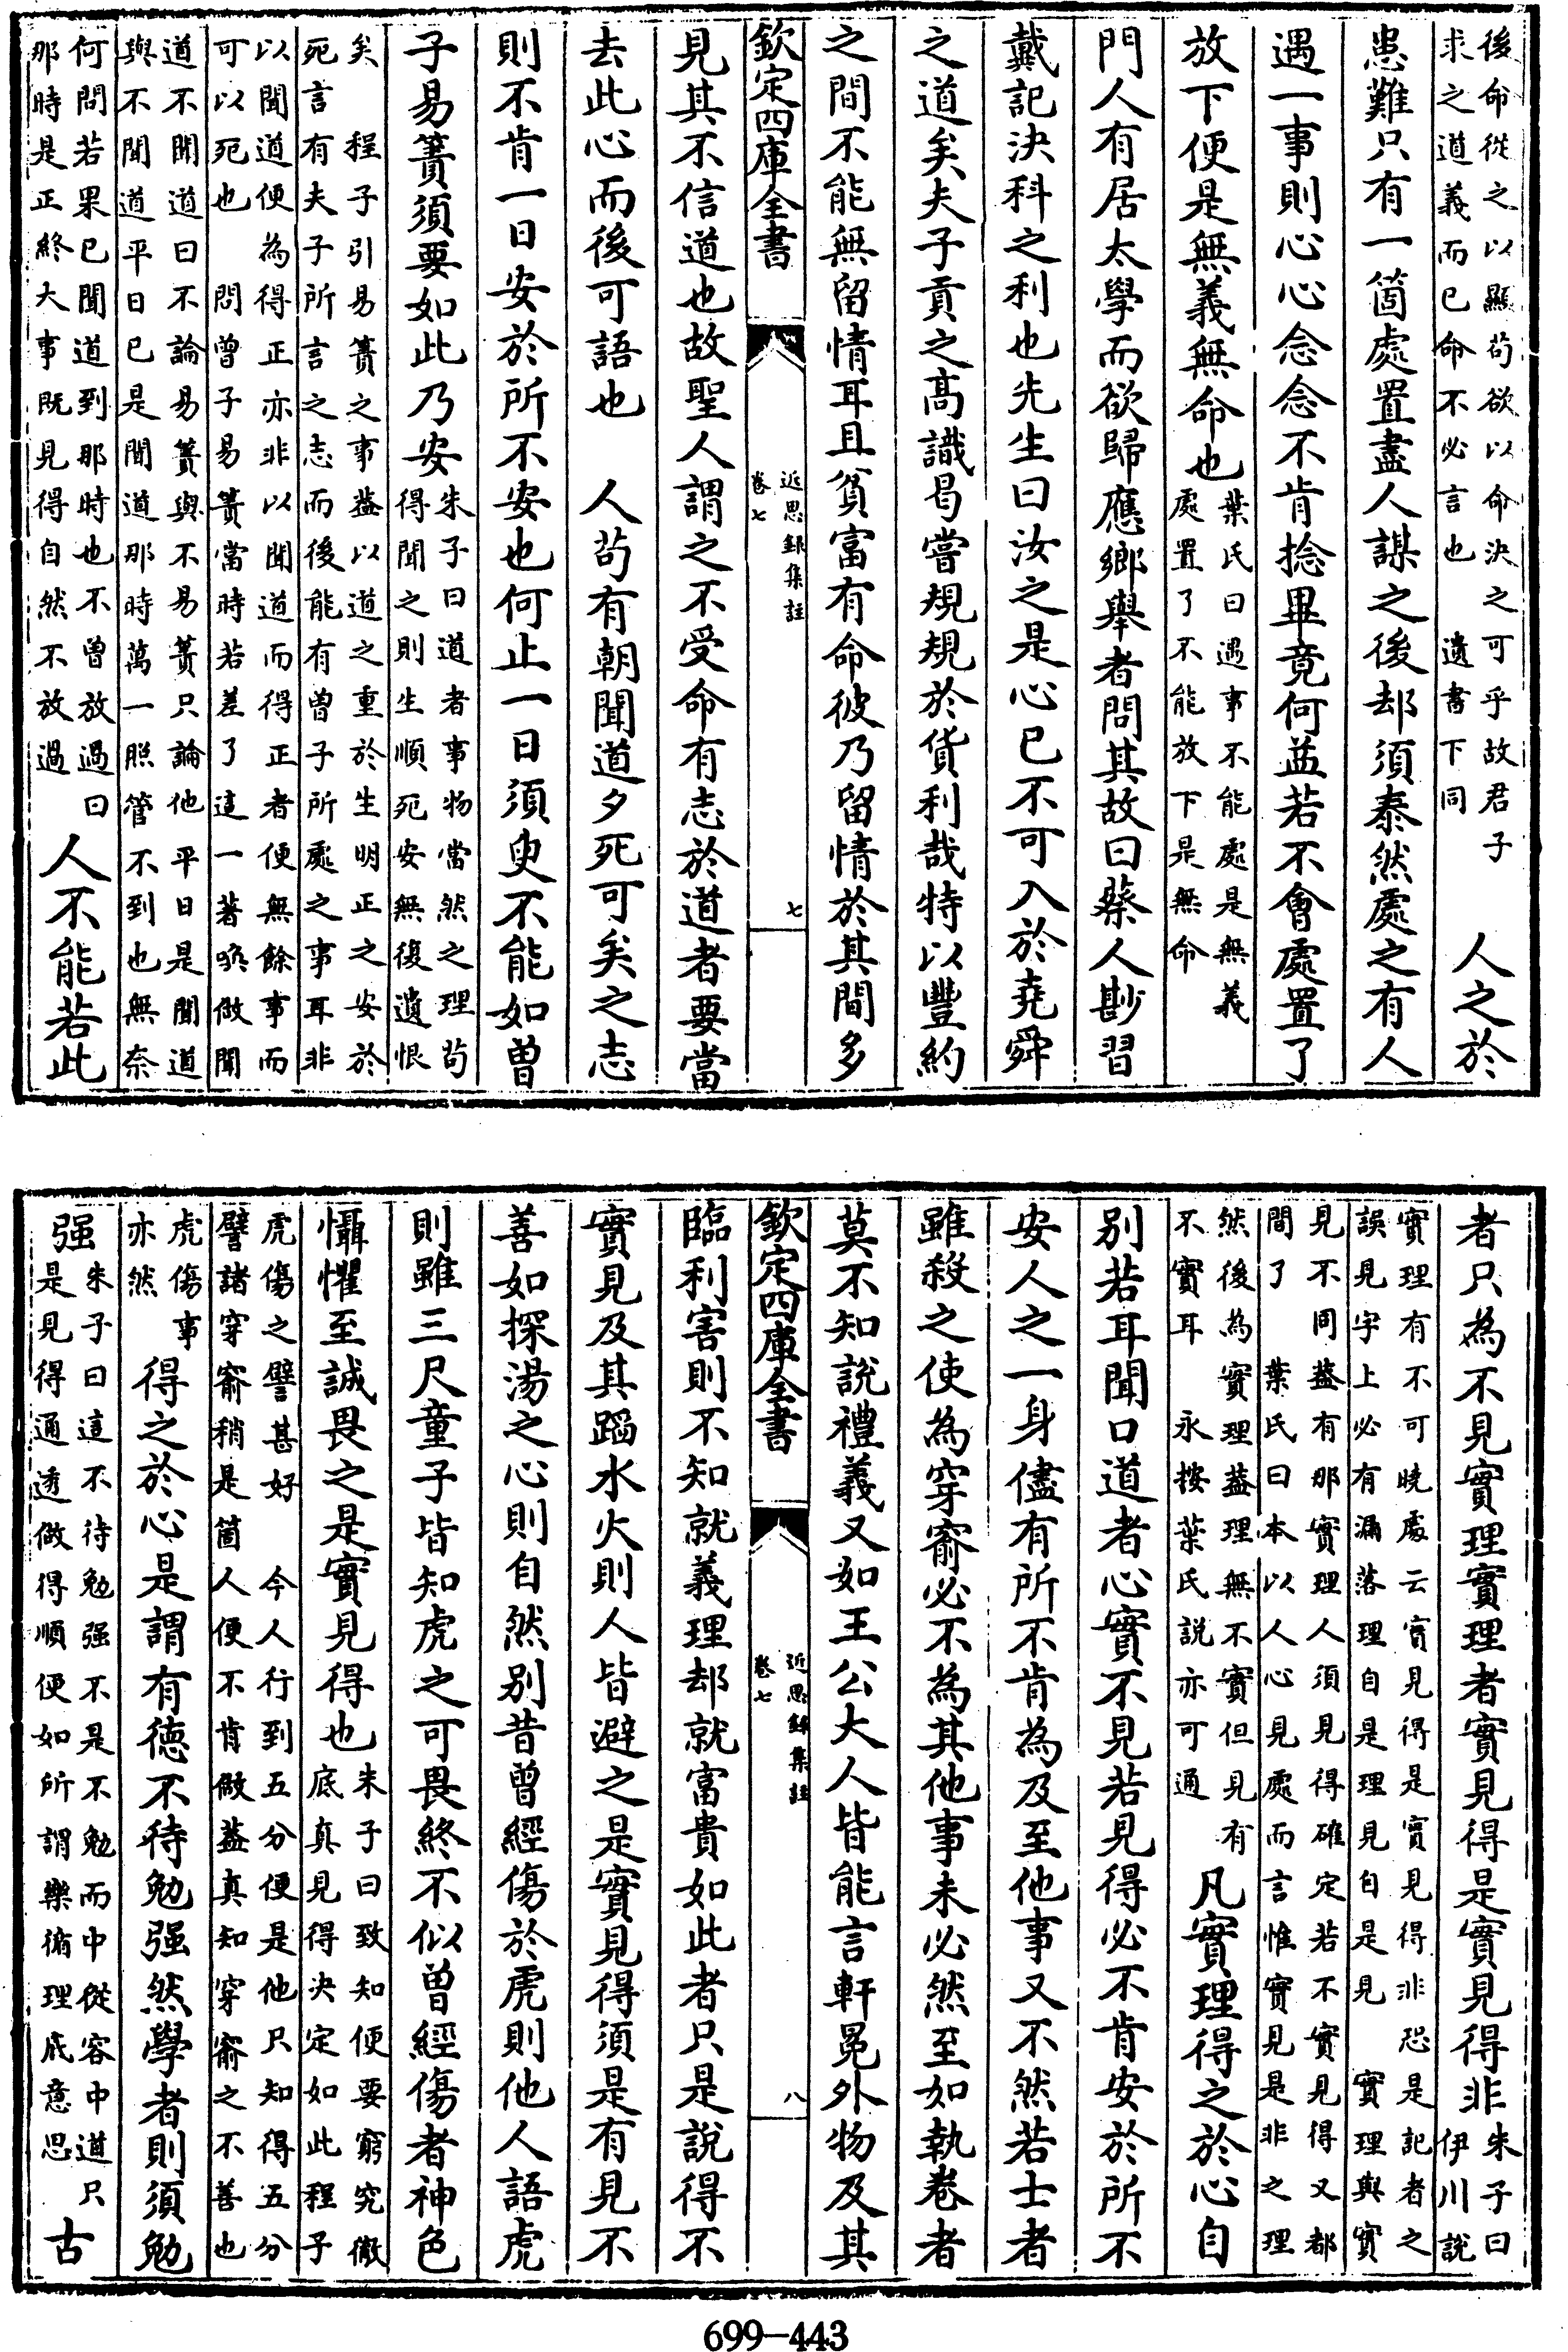 後命從之以顯茍欲以命決之可乎故君子
求之道義而已命不必言也　遺書下同
人之於
患難只有一箇處置盡人謀之後却須泰然處之有人
遇一事則心心念念不肯捴畢竟何益若不會處置了
放下便是無義無命也
葉氏曰遇事不能處是無義
處置了不能放下是無命
門人有居太學而欲歸應鄉舉者問其故曰蔡人尠習
戴記決科之利也先生曰汝之是心已不可入於堯舜
之道矣夫子貢之髙識曷嘗規規於貨利哉特以豐約
之間不能無留情耳且貧富有命彼乃留情於其間多
欽定四庫全書
近思録集註
卷七
七
見其不信道也故聖人謂之不受命有志於道者要當
去此心而後可語也　人茍有朝聞道夕死可矣之志
則不肯一日安於所不安也何止一日須臾不能如曽
子易簀須要如此乃安
朱子曰道者事物當然之理茍
得聞之則生順死安無復遺恨
矣　程子引易簀之事葢以道之重於生明正之安於
死言有夫子所言之志而後能有曽子所處之事耳非
以聞道便為得正亦非以聞道而得正者便無餘事而
可以死也　問曾子易簀當時若差了這一著喚做聞
道不聞道曰不論易簀與不易簀只論他平日是聞道
與不聞道平日已是聞道那時萬一照管不到也無奈
何問若果已聞道到那時也不曽放過曰
那時是正終大事既見得自然不放過
人不能若此
者只為不見實理實理者實見得是實見得非
朱子曰
伊川說
實理有不可曉處云實見得是實見得非恐是記者之
誤見字上必有漏落理自是理見自是見　實理與實
見不同葢有那實理人須見得確定若不實見得又都
間了　葉氏曰本以人心見處而言惟實見是非之理
然後為實理葢理無不實但見有
不實耳　永按葉氏説亦可通
凡實理得之於心自
別若耳聞口道者心實不見若見得必不肯安於所不
安人之一身儘有所不肯為及至他事又不然若士者
雖殺之使為穿窬必不為其他事未必然至如執卷者
莫不知説禮義又如王公大人皆能言軒冕外物及其
欽定四庫全書
近思録集註
卷七
八
臨利害則不知就義理却就富貴如此者只是説得不
實見及其蹈水火則人皆避之是實見得須是有見不
善如探湯之心則自然別昔曽經傷於虎則他人語虎
則雖三尺童子皆知虎之可畏終不似曽經傷者神色
懾懼至誠畏之是實見得也
朱子曰致知便要窮究徹
底真見得決定如此程子
虎傷之譬甚好　今人行到五分便是他只知得五分
譬諸穿窬稍是箇人便不肯做葢真知穿窬之不善也
虎傷事
亦然
得之於心是謂有徳不待勉强然學者則須勉
强
朱子曰這不待勉强不是不勉而中從容中道只
是見得通透做得順便如所謂樂循理底意思
古
699-443